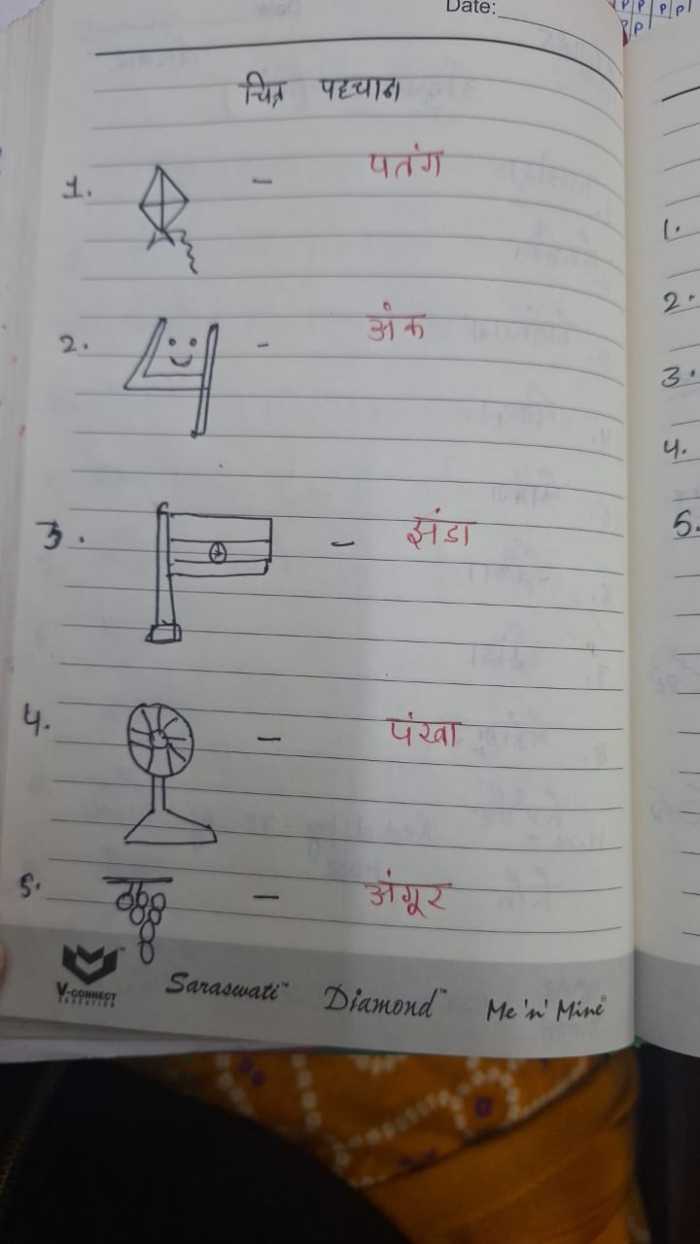 Date:
चित्र पहचान
1. - पतंग
2. - अंक
3. - झंडा
4. - पंखा
5. - अंगूर
V-CONNECT
EDUCATION
Saraswati™ Diamond™ Me 'n' Mine®
P P P P
P P
1.
2.
3.
4.
5.